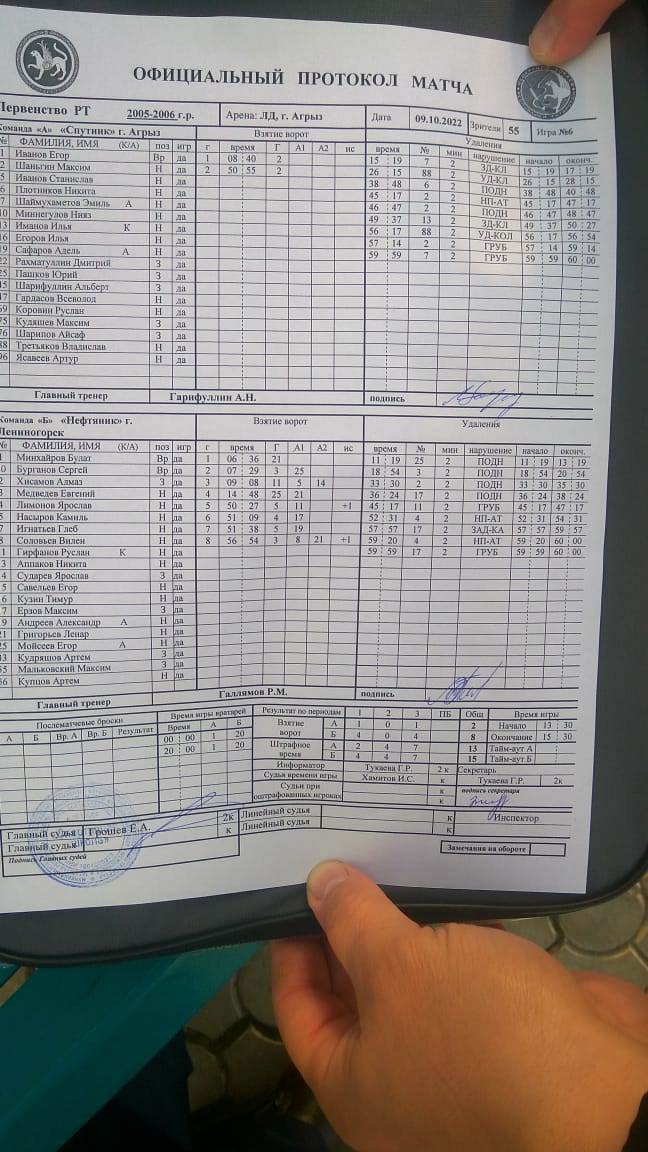 ОФИЦИАЛЬНЫЙ ПРОТОКОЛ МАТЧА
Первенство РТ 2005-2006 г.р. Арена: ЛД, г. Агрыз Дата 09.10.2022 Зрители 55 Игра №6
Команда «А» «Спутник» г. Агрыз Взятие ворот Удаления
№ ФАМИЛИЯ, ИМЯ (К/А) поз игр г время Г А1 А2 ис время № мин нарушение начало оконч.
Иванов Егор Вр да 1 08 : 40 2 15 : 19 7 2 ЗД-КЛ 15 19 17 19
Шаньгин Максим Н да 2 50 : 55 2 26 : 15 88 2 УД-КЛ 26 15 28 15
Иванов Станислав Н да 38 : 48 6 2 ПОДН 38 48 40 48
Плотников Никита Н да 45 : 17 2 2 НП-АТ 45 17 47 17
Шаймухаметов Эмиль А Н да 46 : 47 2 2 ПОДН 46 47 48 47
Миннегулов Нияз Н да 49 : 37 13 2 ЗД-КЛ 49 37 50 27
Иманов Илья К Н да 56 : 17 88 2 УД-КОЛ 56 17 56 54
Егоров Илья Н да 57 : 14 2 2 ГРУБ 57 14 59 14
Сафаров Адель А Н да 59 : 59 7 2 ГРУБ 59 59 60 00
Рахматуллин Дмитрий З да
Пашков Юрий З да
Шарифуллин Альберт З да
Гардасов Всеволод Н да
Коровин Руслан Н да
Кудяшев Максим З да
76 Шарипов Айсаф З да
88 Третьяков Владислав Н да
96 Ясавеев Артур Н да
Главный тренер Гарифуллин А.Н. подпись
Команда «Б» «Нефтяник» г. Лениногорск Взятие ворот Удаления
№ ФАМИЛИЯ, ИМЯ (К/А) поз игр г время Г А1 А2 ис время № мин нарушение начало оконч.
Минхайров Булат Вр да 1 06 : 36 21 11 : 19 25 2 ПОДН 11 19 13 19
Бурганов Сергей Вр да 2 07 : 29 3 25 18 : 54 3 2 ПОДН 18 54 20 54
Хисамов Алмаз З да 3 09 : 08 11 5 14 33 : 30 2 2 ПОДН 33 30 35 30
Медведев Евгений Н да 4 14 : 48 25 21 36 : 24 17 2 ПОДН 36 24 38 24
Лимонов Ярослав Н да 5 50 : 27 5 11 +1 45 : 17 11 2 ГРУБ 45 17 47 17
Насыров Камиль Н да 6 51 : 09 4 17 52 : 31 4 2 НП-АТ 52 31 54 31
Игнатьев Глеб Н да 7 51 : 38 5 19 57 : 57 17 2 ЗАД-КА 57 57 59 57
Соловьев Вилен Н да 8 56 : 54 3 8 21 +1 59 : 20 4 2 НП-АТ 59 20 60 00
Гирфанов Руслан К Н да 59 : 59 17 2 ГРУБ 59 59 60 00
Аппаков Никита Н да
Сударев Ярослав З да
Савельев Егор Н да
Кузин Тимур Н да
Ерзов Максим З да
Андреев Александр А Н да
Григорьев Ленар Н да
Моисеев Егор А Н да
Кудряшов Артем З да
Мальковский Максим З да
Купцов Артем Н да
Главный тренер Галлямов Р.М. подпись
Послематчевые броски Время игры вратарей Результат по периодам 1 2 3 ПБ Общ Время игры
А Б Вр. А Вр. Б Результат Время А Б Взятие ворот А 1 0 1 2 Начало 13 : 30
00 : 00 1 20 Б 4 0 4 8 Окончание 15 : 30
20 : 00 1 20 Штрафное время А 2 4 7 13 Тайм-аут А
Б 4 4 7 15 Тайм-аут Б
Информатор Тукаева Г.Р. 2 к Секретарь
Судья времени игры Хамитов И.С. к Тукаева Г.Р. 2к
Судьи при оштрафованных игроках к подпись секретаря
к
Главный судья Грошев Е.А. 2к Линейный судья к Инспектор
Главный судья к Линейный судья к
Подпись Главных судей
Замечания на обороте